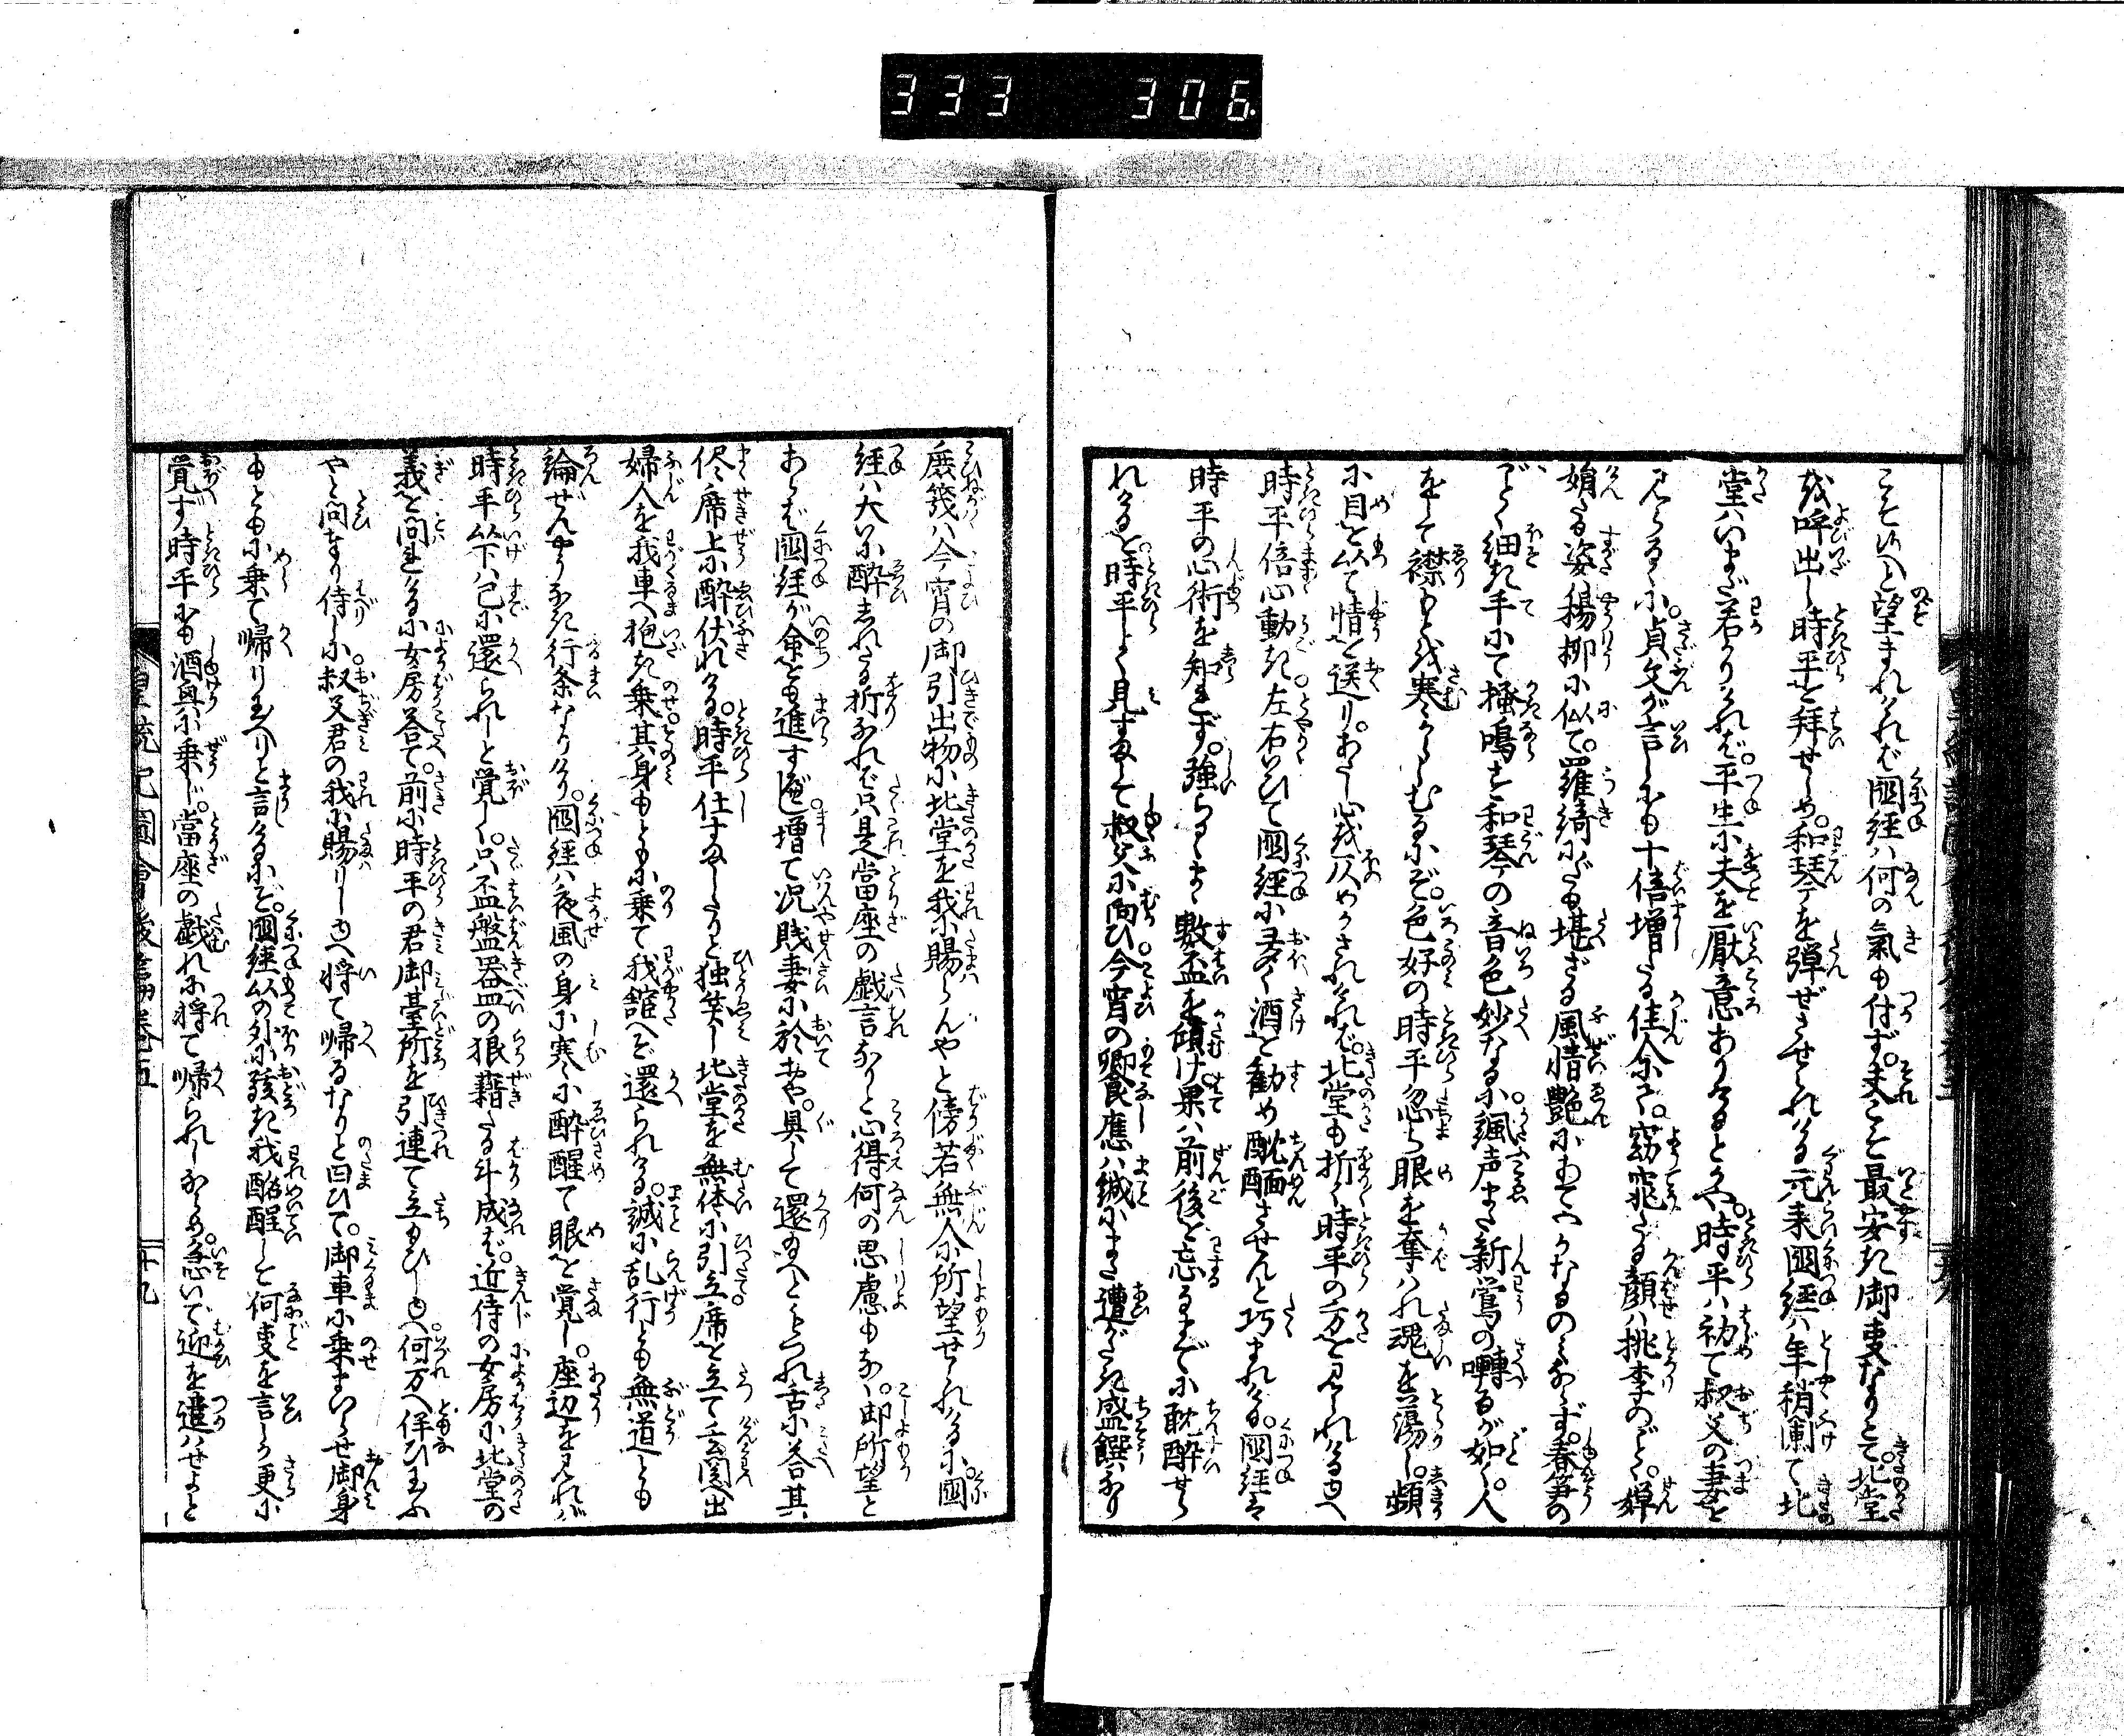 333 306
こそ候へと望まれければ国経ハ何の氣も付ず。夫こそ最安き御事なりとて。北堂
を呼出し時平を拝せしめ。和琴を弾ぜさせられける元来国経ハ年稍闌て北
堂ハいまだ若かりければ。平生に夫を厭意ありけるとかや。時平ハ初て叔父の妻を
見らるゝに。貞文が言しにも十倍増たる佳人にて。窈窕たる顔ハ桃李のごとく。嬋
娟たる姿楊柳に似て。羅綺にだも堪ざる風情艶にあてやかなるのみならず。春笋の
ごとく細き手にて掻鳴す和琴の音色妙なるに謳声また新鶯の囀るが如く。人
をして襟もとを寒からしむるにぞ。色好の時平忽ち眼を奪ハれ魂を蕩し。頻
に目を以て情を送り。あだし心を仄めかされければ。北堂も折々時平の方を見られけるゆへ
時平倍心動き。左右ひて国経に多く酒を勧め酖湎させんと巧まれける。国経は
時平の心術を知らず。強らるゝまゝ数盃を傾け果ハ前後を忘るまでに耽酔せら
れけるを。時平よく見すまして叔父に向ひ。今宵の饗應ハ誠にまた遭がたき盛饌なり
庶幾ハ今宵の御引出物に北堂を我に賜らんやと傍若無人に所望せられけるに。國
経ハ大に酔しれたる折なれバ只是當座の戯言なりと心得何の思慮もなく。御所望と
あらバ國経が命をも進すべし。増て況賎妻に於をや。具して還り給へともつれ舌に答其
侭席上に酔伏れける。時平仕すましたりと独笑し北堂を無体に引立席を立て玄関へ出
婦人を我車へ抱き乗其身もともに乗て我舘へぞ還られける。誠に乱行とも無道とも
論ぜんやうなき行条なりけり。國経ハ夜風の身に寒に酔醒て眼を覚し。座辺を見れバ
時平以下ハ已に還られしと覚しく。只盃盤器皿の狼藉たる斗成バ。近侍の女房に北堂の
義を問れけるに女房答て。前に時平の君御臺所を引連て立給ひしゆへ。何方へ伴ひ玉ふ
やと問なり侍しに。叔父君の我に賜りしゆへ将て帰るなりと曰ひて。御車に乗まいらせ御身
もともに乗て帰り玉へりと言けるにぞ。國経以の外に駭き我酩酲しと何事を言しか更に
覚ず時平にも酒興に乗じ。當座の戯れに将て帰られしならめ。急いで迎を遣ハせよと
皇統記圖會後篇巻五
十九